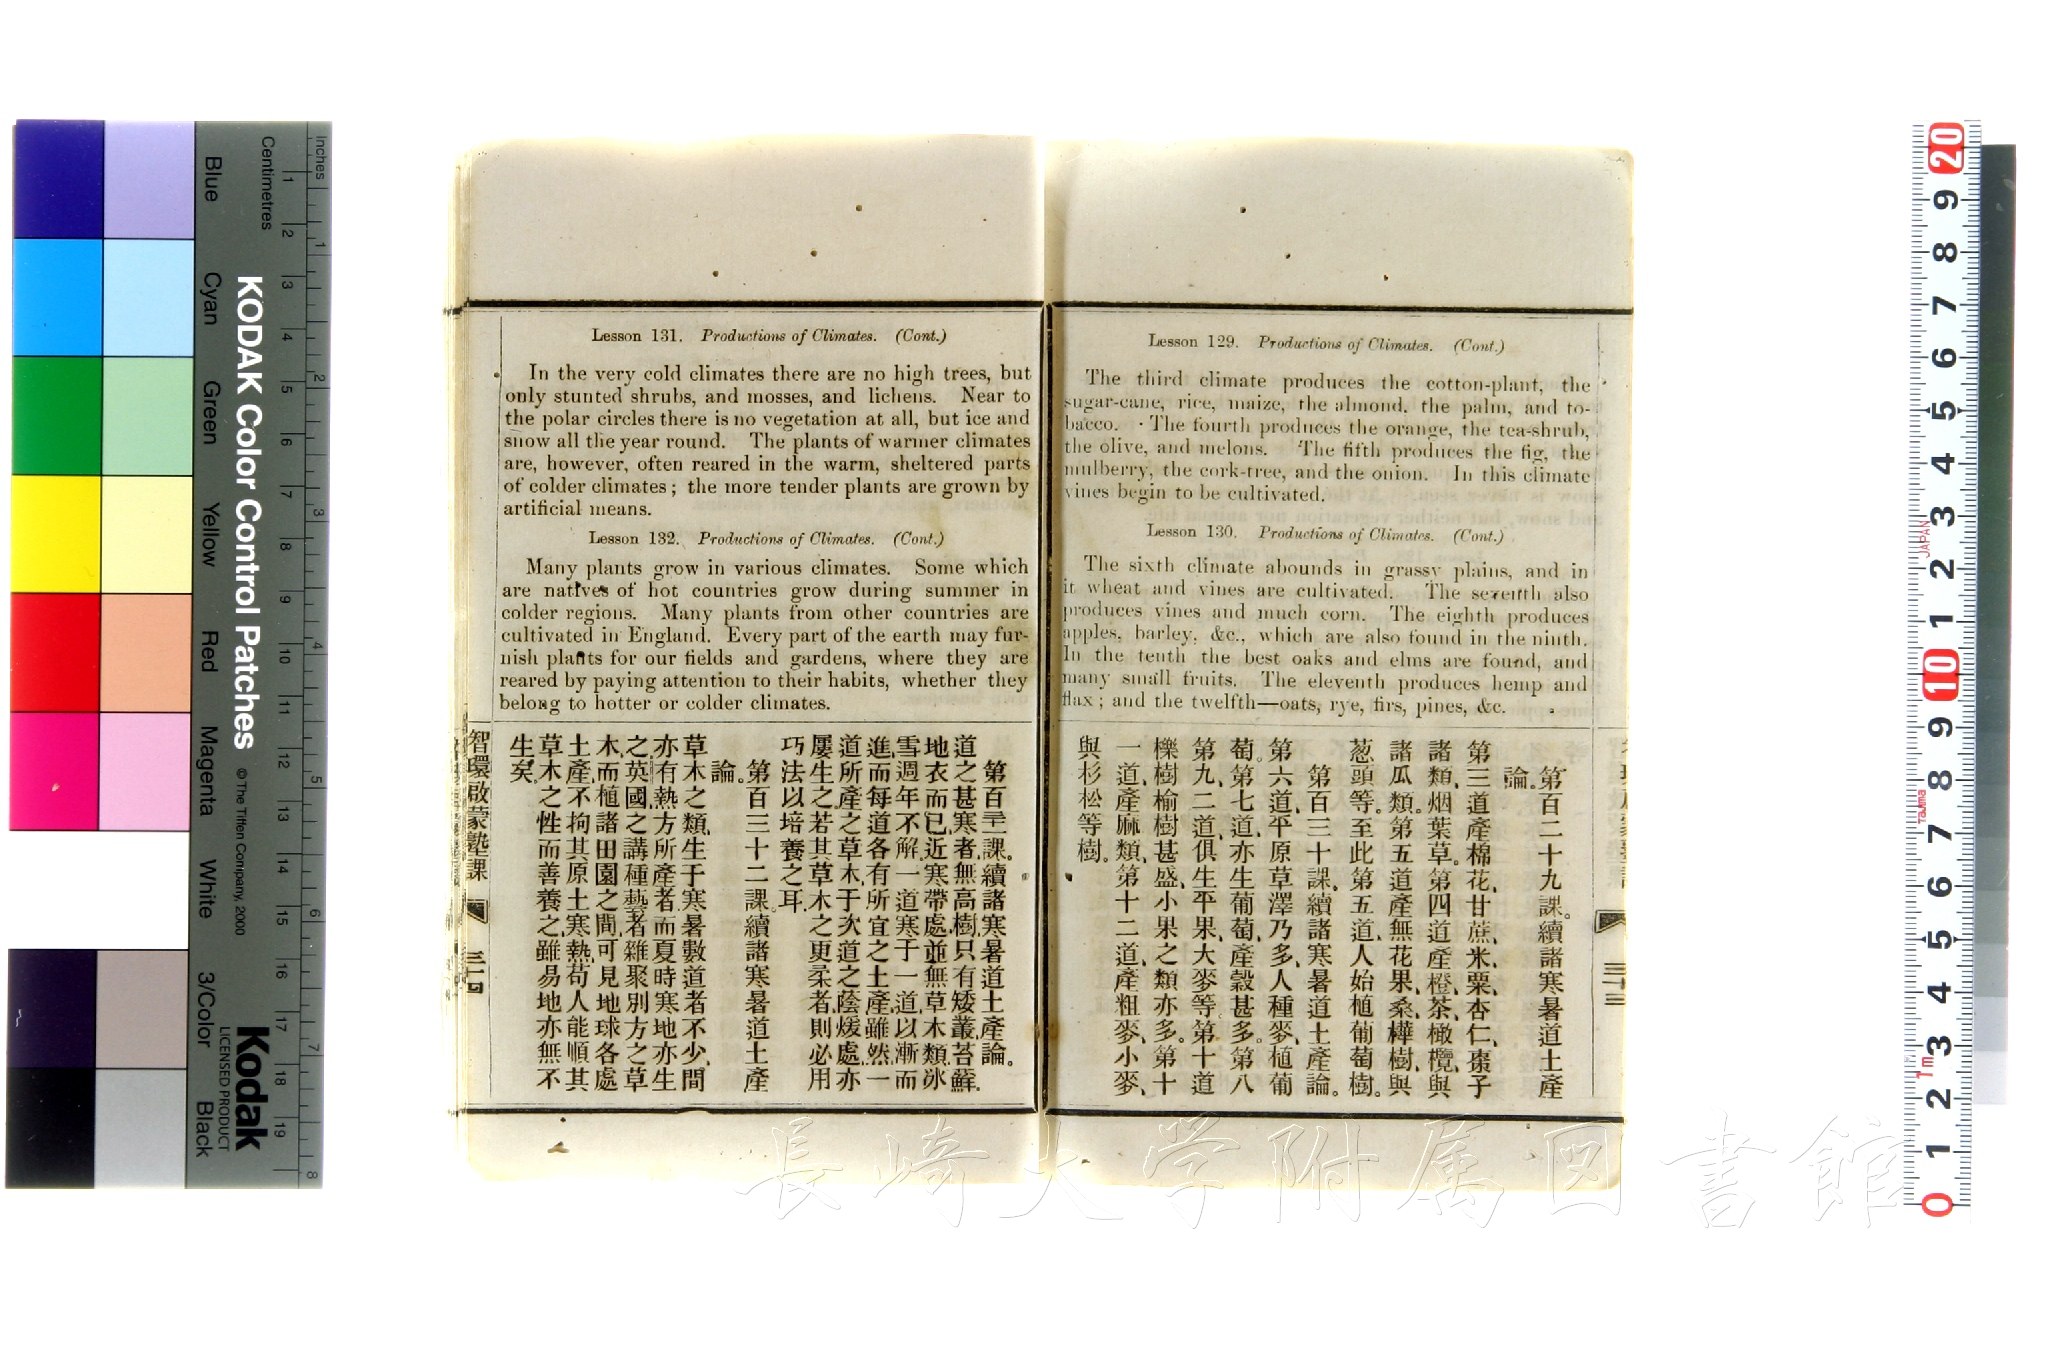 Lesson 129. Productions of Climates. (Cont.)
The third climate produces the cotton-plant, the
sugar-cane, rice, maize, the almond, the palm, and to-
bacco. The fourth produces the orange, the tea-shrub,
the olive, and melons. The fifth produces the fig, the
mulberry, the cork-tree, and the onion. In this climate
vines begin to be cultivated.
Lesson 130. Productions of Climates. (Cont.)
The sixth climate abounds in grassy plains, and in
it wheat and vines are cultivated. The seventh also
produces vines and much corn. The eighth produces
apples, barley, &c., which are also found in the ninth.
In the tenth the best oaks and elms are found, and
many small fruits. The eleventh produces hemp and
flax; and the twelfth—oats, rye, firs, pines, &c.
第百二十九課。續諸寒暑道土產
論。
第三道產棉花、甘蔗、米、粟、杏仁、棗子
諸類、烟葉草。第四道產橙、茶、橄欖、與
諸瓜類。第五道產無花果、桑、樺樹、與
葱頭等。至此第五道、人始植葡萄樹。
第百三十課、續諸寒暑道土產論。
第六道、平原草澤乃多、人種麥、植葡
萄。第七道、亦生葡萄、產穀甚多。第八
第九、二道、俱生平果、大麥等。第十道
櫟樹榆樹甚盛、小果之類亦多。第十
一道、產麻類、第十二道、產粗麥、小麥、
與杉松等樹。
三十三
Lesson 131. Productions of Climates. (Cont.)
In the very cold climates there are no high trees, but
only stunted shrubs, and mosses, and lichens. Near to
the polar circles there is no vegetation at all, but ice and
snow all the year round. The plants of warmer climates
are, however, often reared in the warm, sheltered parts
of colder climates; the more tender plants are grown by
artificial means.
Lesson 132. Productions of Climates. (Cont.)
Many plants grow in various climates. Some which
are natives of hot countries grow during summer in
colder regions. Many plants from other countries are
cultivated in England. Every part of the earth may fur-
nish plants for our fields and gardens, where they are
reared by paying attention to their habits, whether they
belong to hotter or colder climates.
第百三十一課。續諸寒暑道土產論。
道之甚寒者、無高樹、只有矮叢、苔蘚、
地衣而已、近寒帶處、並無草木類、氷
雪週年不解、一道寒于一道、以漸而
進、而每道各有所宜之土產、雖然、一
道所產之草木、于次道之蔭煖處、亦
屢生之、若其草木之更柔者、則必用
巧法以培養之耳、
第百三十二課、續諸寒暑道土產
論。
草木之類、生于寒暑數道者不少、間
亦有熱方所產者、而夏時寒地亦生
之、英國之講種藝者、雜聚別方之草
木、而植諸田園之間、可見地球各處
土產、不拘其原土寒熱、苟人能順其
草木之性、而善養之、雖易地亦無不
生矣、
智環啟蒙塾課
三十四
KODAK Color Control Patches
© The Tiffen Company, 2000
Kodak
LICENSED PRODUCT
Inches
Centimetres
1 2 3 4 5 6 7 8 9 10 11 12 13 14 15 16 17 18 19
1 2 3 4 5 6 7 8
Blue
Cyan
Green
Yellow
Red
Magenta
White
3/Color
Black
20 9 8 7 6 5 4 3 2 1 10 9 8 7 6 5 4 3 2 1 0
JAPAN
Tajima
1m
長崎大学附属図書館